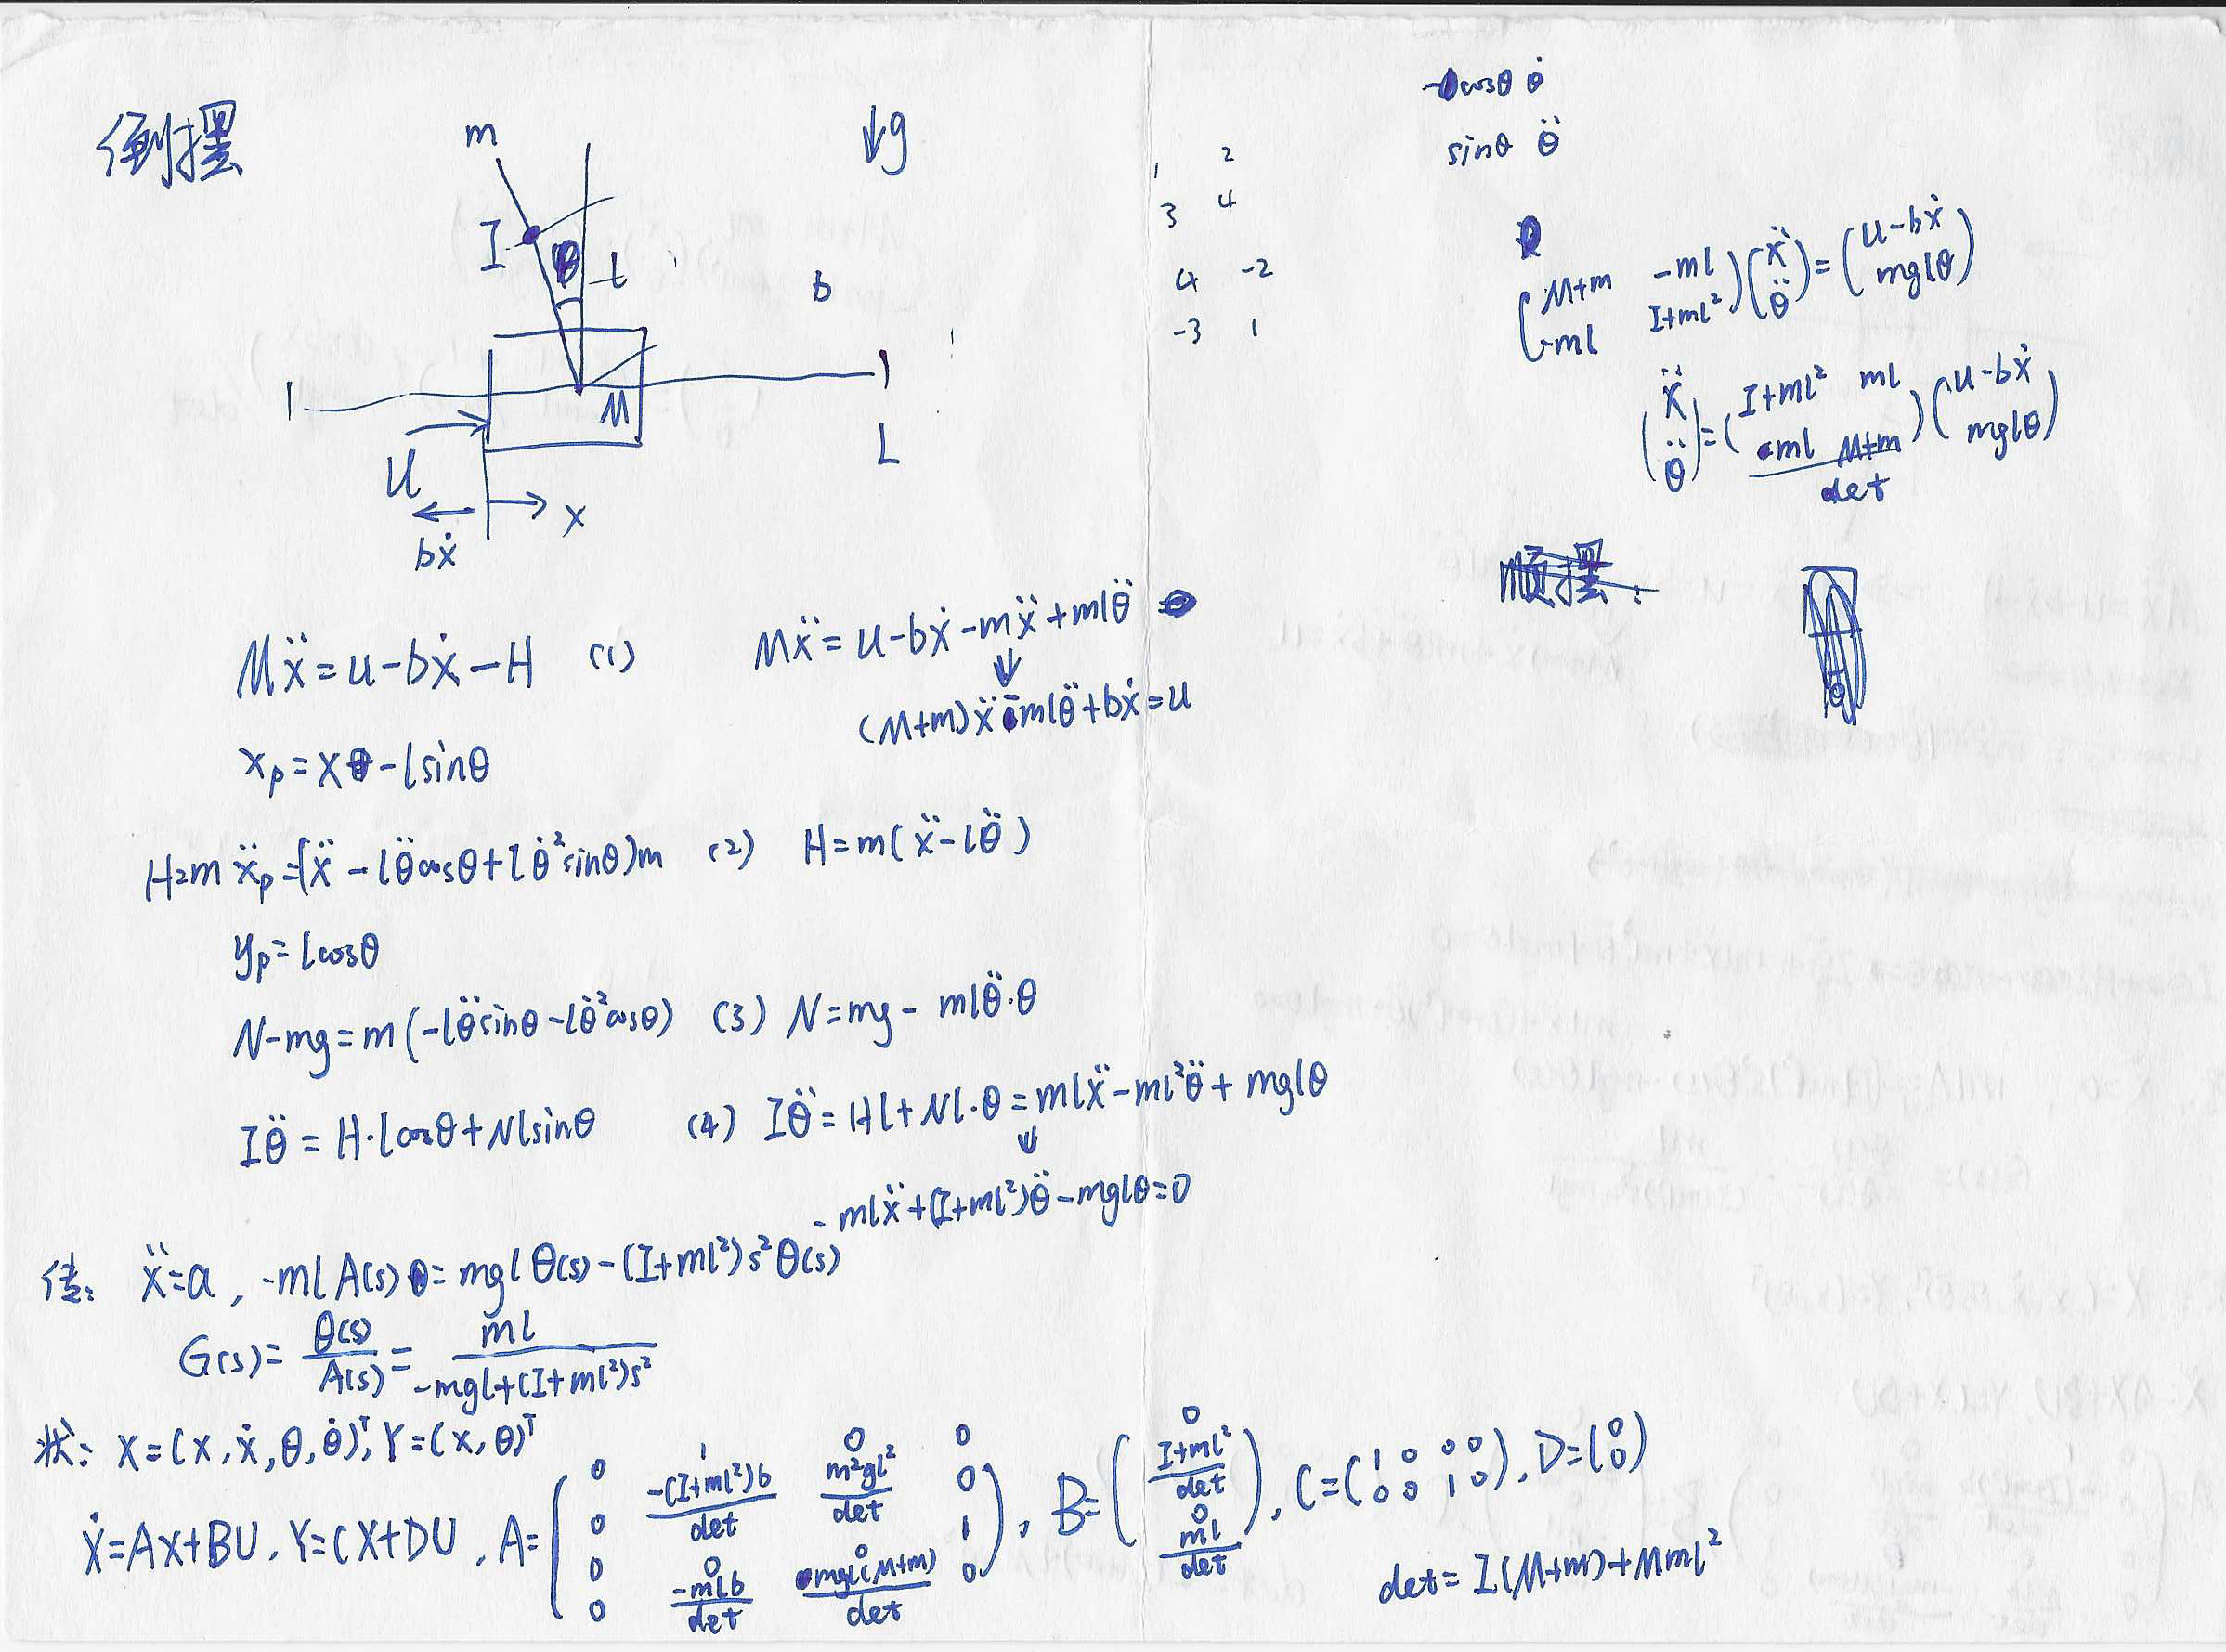 倒摆
m
↓g
I
θ
l
b
M
L
U
x
bẋ
Mẍ=u-bẋ-H (1)
Mẍ=u-bẋ-mẍ+mlθ̈
↓
(M+m)ẍ-mlθ̈+bẋ=u
xₚ=x-lsinθ
H=mẍₚ=(ẍ-lθ̈cosθ+lθ̇²sinθ)m (2) H=m(ẍ-lθ̈)
yₚ=lcosθ
N-mg=m(-lθ̈sinθ-lθ̇²cosθ) (3) N=mg-mlθ̈·θ
Iθ̈=H·lcosθ+Nlsinθ (4) Iθ̈=Hl+Nl·θ=mlẍ-ml²θ̈+mglθ
↓
-mlẍ+(I+ml²)θ̈-mglθ=0
传: ẍ=a, -mlA(s)=mglθ(s)-(I+ml²)s²θ(s)
G(s)=θ(s)/A(s)=ml/(-mgl+(I+ml²)s²)
状: X=(x,ẋ,θ,θ̇)ᵀ, Y=(x,θ)ᵀ
Ẋ=AX+BU, Y=CX+DU, A=
0 1 0 0
0 -(I+ml²)b/det m²gl²/det 0
0 0 0 1
0 -mlb/det mgl(M+m)/det 0
, B=
0
(I+ml²)/det
0
ml/det
, C=
1 0 0 0
0 0 1 0
, D=
0
0
det=I(M+m)+Mml²
1 2
3 4
4 -2
-3 1
cosθ θ̇
sinθ θ̈
(M+m -ml) (ẍ) = (u-bẋ)
(-ml I+ml²) (θ̈) (mglθ)
(ẍ) = (I+ml² ml) (u-bẋ)
(θ̈) (ml M+m) (mglθ)
det
顺摆: